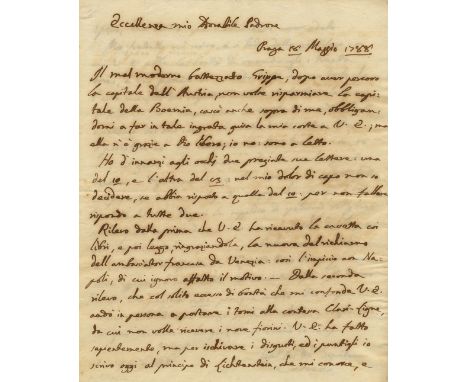 Eccellenza mio Adorabile Padrone
Praga 16 Maggio 1788
Il mal moderno battezzato Grippe, dopo aver percorso
la capitale dell'Austria non volle risparmiare la capi-
tale della Boemia, cascò anche sopra di me, obbligan-
domi a far in tale ingrata guisa la mia corte a V. E.; ma
ella n'è grazie a Dio libera; io no: sono a letto.
Ho d'innanzi agli occhj due preziate sue lettere: una
del 10, e l'altra del 13: nel mio dolor di capo non so
decidere, se abbia risposto a quella del 10: per non fallare
rispondo a tutte due.
Rilevo dalla prima che V. E. ha ricevuto la cassetta coi
libri, e poi leggo, ringraziandola, la nuova del richiamo
dell'ambasciator francese da Venezia: così l'impiccio con Na-
poli, di cui ignoro affatto il motivo. — Dalla seconda
rilevo, che col solito eccesso di bontà che mi confonde V. E.
andò in persona a portare i tomi alla contessa Clari-Ligne,
da cui non volle ricevere i nove fiorini. V. E. ha fatto
sapientemente, ma per ischivare i disgusti, ed i puntigli io
scrivo oggi al principe di Lichtenstein, che mi conosce, e